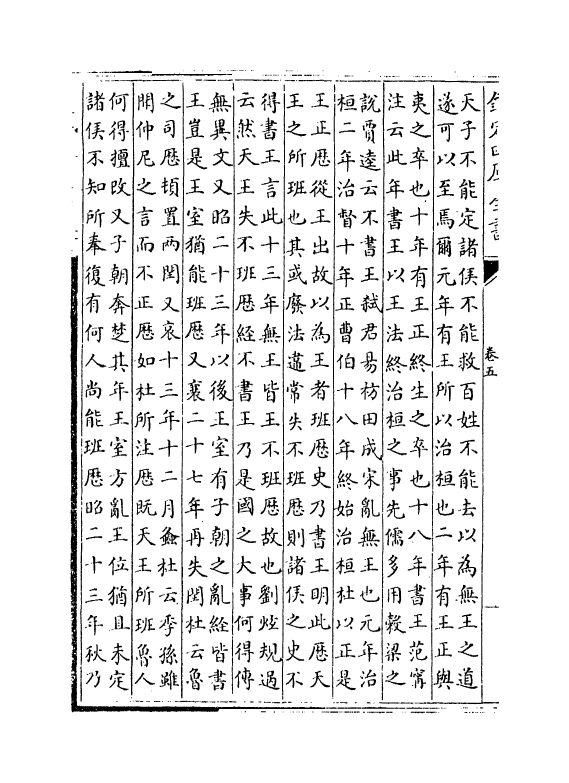 欽定四庫全書
卷五
天子不能定諸侯不能救百姓不能去以為無王之道
遂可以至焉爾元年有王所以治桓也二年有王正與
夷之卒也十年有王正終生之卒也十八年書王范甯
注云此年書王以王法終治桓之事先儒多用穀梁之
說賈逵云不書王弑君易枋田成宋亂無王也元年治
桓二年治督十年正曹伯十八年終始治桓杜以正是
王正歴從王出故以為王者班歴史乃書王明此歴天
王之所班也其或廢法違常失不班歴則諸侯之史不
得書王言此十三年無王皆王不班歴故也劉炫規過
云然天王失不班歴經不書王乃是國之大事何得傳
無異文又昭二十三年以後王室有子朝之亂經皆書
王豈是王室猶能班歴又襄二十七年再失閏杜云魯
之司歴頓置兩閏又哀十三年十二月螽杜云季孫雖
聞仲尼之言而不正歴如杜所注歴既天王所班魯人
何得擅改又子朝奔楚其年王室方亂王位猶且未定
諸侯不知所奉復有何人尚能班歴昭二十三年秋乃